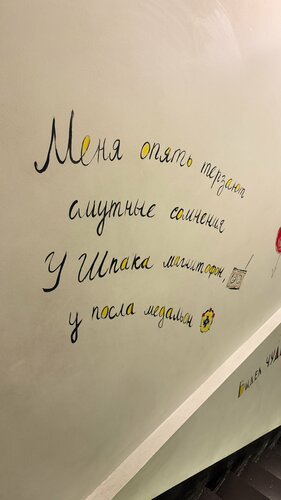 Меня опять терзают
смутные сомнения
У Шпака магнитофон,
у посла медальон